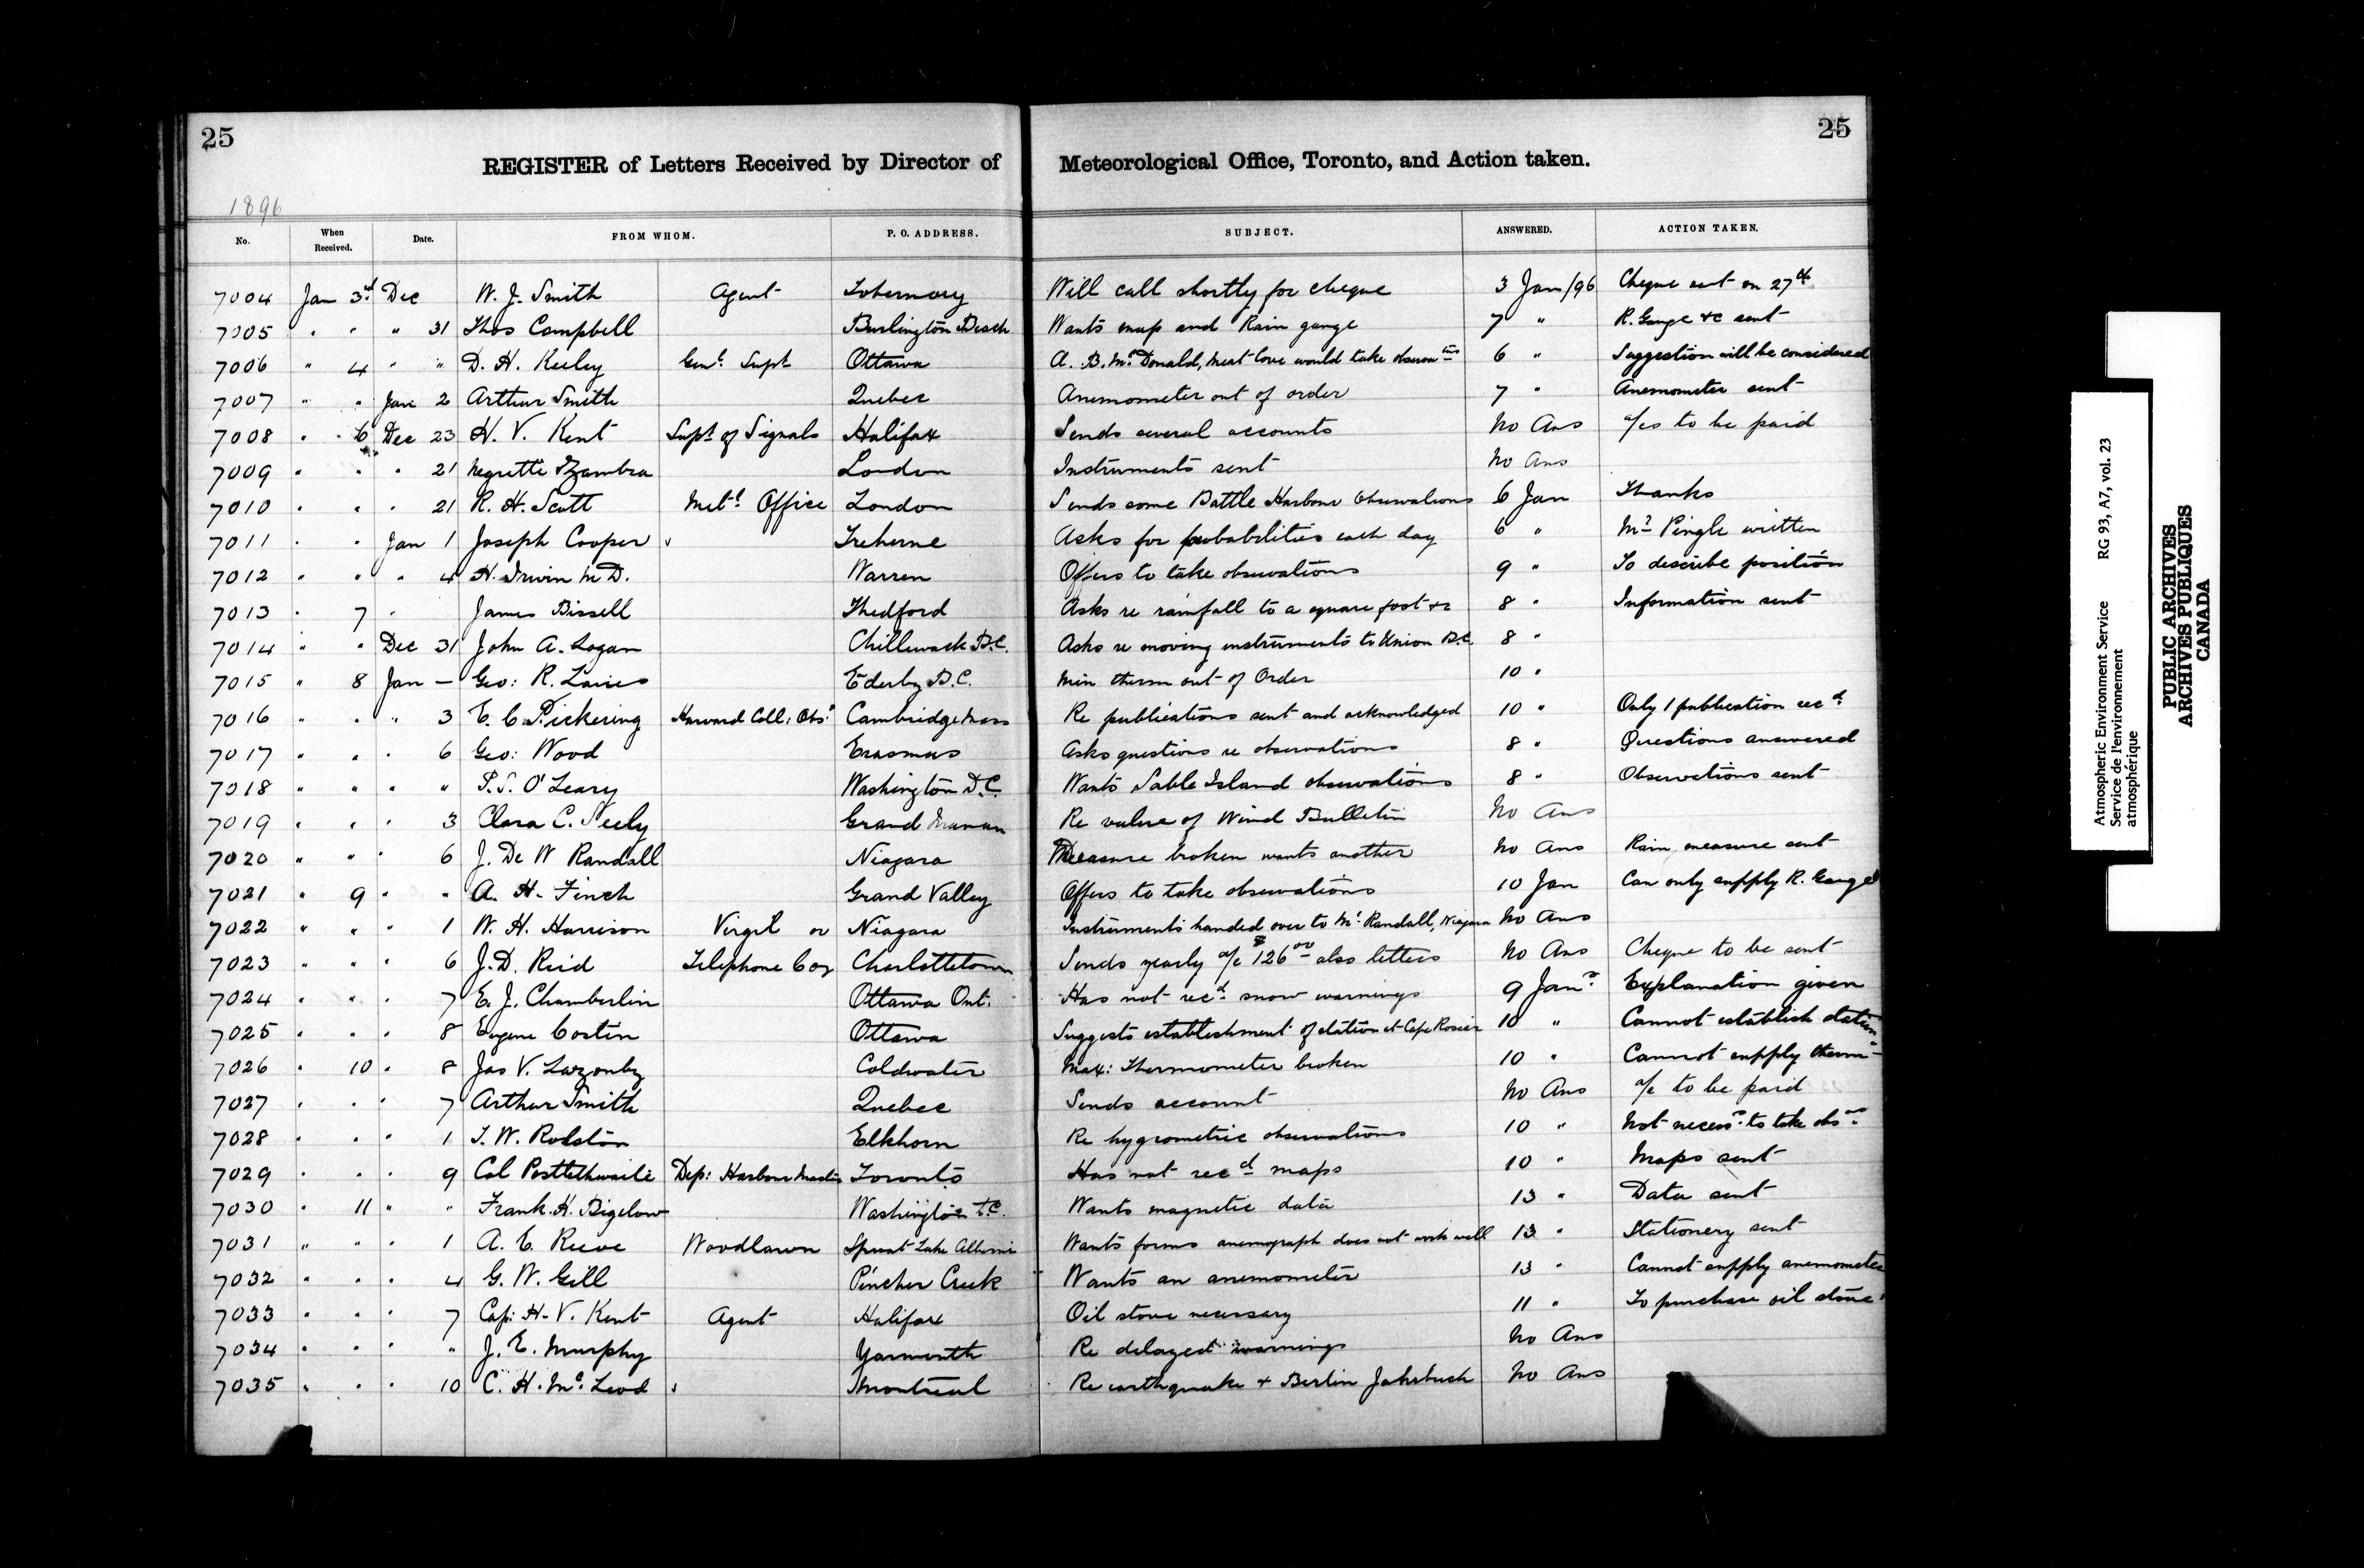 25
25
REGISTER of Letters Received by Director of Meteorological Office, Toronto, and Action taken.
1896
No. When Received. Date. FROM WHOM. P. O. ADDRESS. SUBJECT. ANSWERED. ACTION TAKEN.
7004 Jan 3rd Dec W. J. Smith Agent Tobermory Will call shortly for cheque 3 Jan/96 Cheque sent on 27th
7005 " " " 31 Thos Campbell Burlington Beach Wants map and Rain gauge 7 " R. Gauge &c sent
7006 " 4 " " D. H. Keeley Genl. Supt Ottawa A. B. McDonald, Meat Cove would take observatns 6 " Suggestion will be considered
7007 " " Jan 2 Arthur Smith Quebec Anemometer out of order 7 " Anemometer sent
7008 " " 6 Dec 23 H. V. Kent Supt of Signals Halifax Sends several accounts No Ans a/cs to be paid
7009 " " " 21 Negretti & Zambra London Instruments sent No Ans
7010 " " " 21 R. H. Scott Metl Office London Sends some Battle Harbour Observations 6 Jan Thanks
7011 " " Jan 1 Joseph Cooper Treherne Asks for probabilities each day 6 " Mr Pingle written
7012 " " " 4 H. Irwin M D. Warren Offers to take observations 9 " To describe position
7013 " 7 " James Bissell Thedford Asks re rainfall to a square foot &c 8 " Information sent
7014 " " Dec 31 John A. Logan Chilliwack B.C. Asks re moving instruments to Union B.C. 8 "
7015 " 8 Jan — Geo: R. Ederby B.C. Min therm out of Order 10 "
7016 " " " 3 E. C. Pickering Harvard Coll: Obsy Cambridge Mass Re publications sent and acknowledged 10 " Only 1 publication recd
7017 " " " 6 Geo: Wood Erasmus Asks questions re observations 8 " Questions answered
7018 " " " " P. S. O'Leary Washington D.C. Wants Sable Island observations 8 " Observations sent
7019 " " " 3 Clara C. Seely Grand Manan Re value of Wind Bulletin No Ans
7020 " " " 6 J. De W Randall Niagara Measure broken wants another No Ans Rain measure sent
7021 " 9 " " A. H. Finch Grand Valley Offers to take observations 10 Jan Can only supply R. Gauge
7022 " " " 1 W. H. Harrison Virgil or Niagara Instruments handed over to Mr. Randall, Niagara No Ans
7023 " " " 6 J. D. Reid Telephone Coy Charlottetown Sends yearly a/c $126 00 also letters No Ans Cheque to be sent
7024 " " " 7 E. J. Chamberlin Ottawa Ont. Has not recd snow warnings 9 Jany Explanation given
7025 " " " 8 Eugene Costin Ottawa Suggests establishment of station at Cape Rosier 10 " Cannot establish station
7026 " 10 " 8 Jas V. Lazonby Coldwater Max: Thermometer broken 10 " Cannot supply therm
7027 " " " 7 Arthur Smith Quebec Sends account No Ans a/c to be paid
7028 " " " 1 J. W. Rolston Elkhorn Re hygrometric observations 10 " Not necessy to take obsns
7029 " " " 9 Col Postlethwaite Dep: Harbour Master Toronto Has not recd maps 10 " Maps sent
7030 " 11 " " Frank. H. Bigelow Washington D.C. Wants magnetic data 13 " Data sent
7031 " " " 1 A. E. Reeve Woodlawn Sproat Lake Alberni Wants forms anemograph does not work well 13 " Stationery sent
7032 " " " 4 G. W. Gill Pincher Creek Wants an anemometer 13 " Cannot supply anemometer
7033 " " " 7 Cap: H. V. Kent Agent Halifax Oil stove necessary 11 " To purchase oil stove
7034 " " " " J. E. Murphy Yarmouth Re delayed warnings No Ans
7035 " " " 10 C. H. McLeod Montreal Re earthquake + Berlin Jahrbuch No Ans
Atmospheric Environment Service RG 93, A7, vol. 23
Service de l'environnement
atmosphérique
PUBLIC ARCHIVES
ARCHIVES PUBLIQUES
CANADA